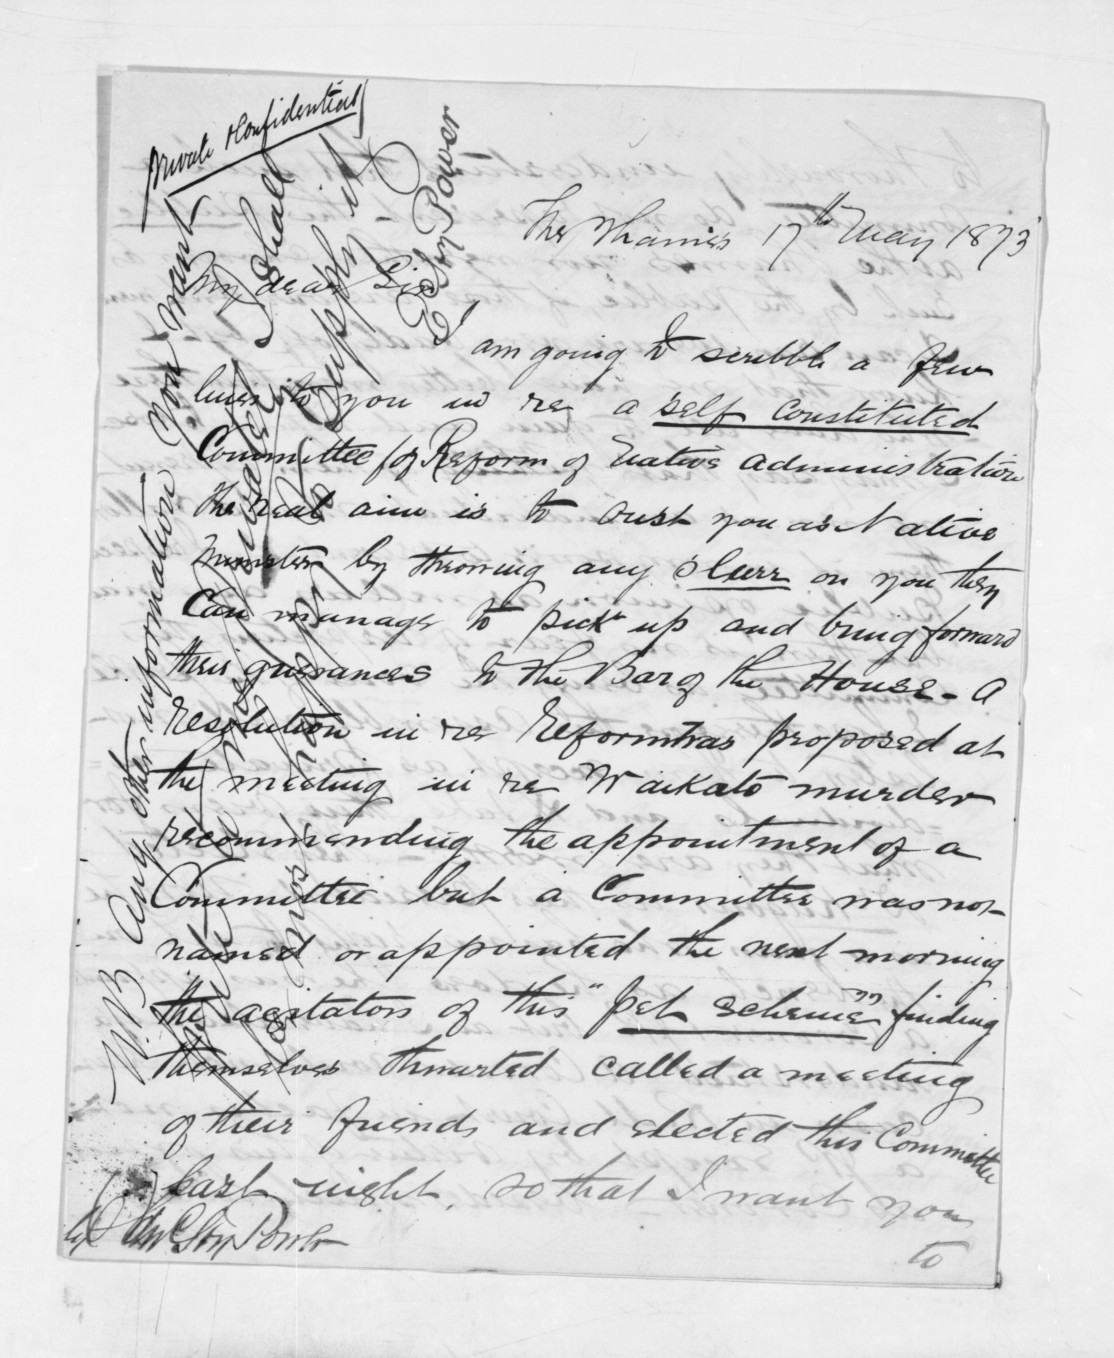 Private & Confidential
The Thames 17th May 1873
My dear Sir
I am going to scribble a few
lines to you in re a self constituted
Committee for Reform of Native administration
the real aim is to oust you as Native
Minister by throwing any slurr on you they
Can manage to pick up and bring forward
their grievances to the Bar of the House - A
Resolution in re Reform was proposed at
the meeting in re Waikato murder
recommending the appointment of a
Committee but a Committee was not
named or appointed the next morning
the agitators of this "pet scheme" finding
themselves thwarted called a meeting
of their friends and elected this Committee
last night, so that I want you
to
N.B Any other information you want
I shall
supply it
Power